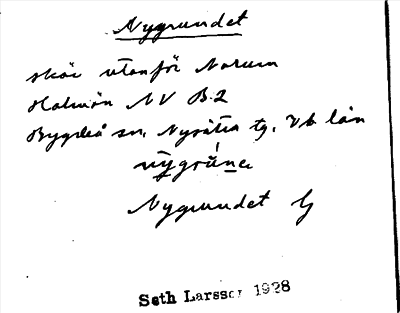 Nygrundet
skär utanför Norum
Holmön NV B.2
Bygdeå sn, Nysätra tg. Vb län
nygrúne
Nygrundet G
Seth Larsson 1928